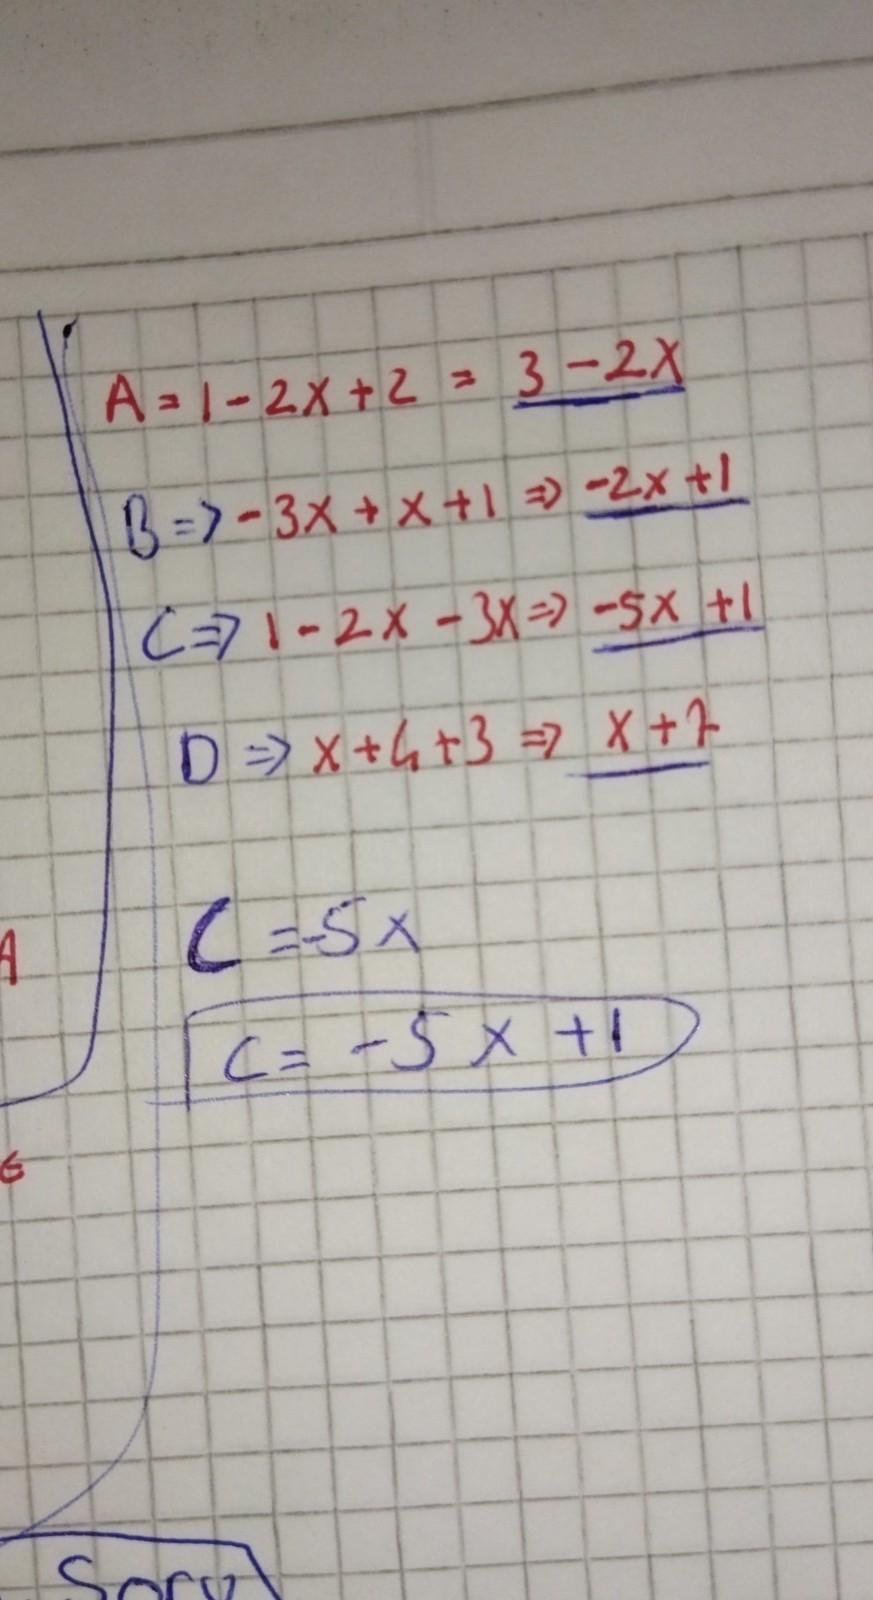 A = 1 - 2x + 2 = 3 - 2x
B => -3x + x + 1 => -2x + 1
C => 1 - 2x - 3x => -5x + 1
D => x + 4 + 3 => x + 7
A
C = -5x
C = -5x + 1
€
Soru